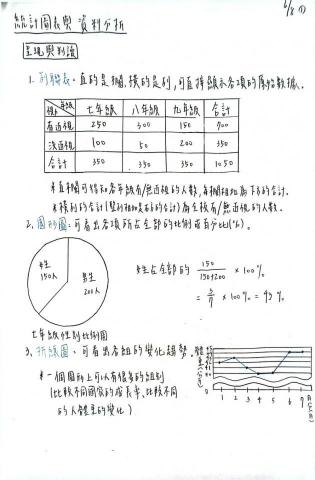 統計圖表與資料分析
呈現與判讀
1. 列聯表：直的是欄，橫的是列，可直接顯示各項的原始數據。
年級 七年級 八年級 九年級 合計
視力
有近視 250 300 150 700
沒近視 100 50 200 350
合計 350 350 350 1050
*直欄可得知各年級有/無近視的人數，每欄相加為下方的合計。
*橫列的合計(豎列相加是右方合計)為全校有/無近視的人數。
2. 圓形圖：可看出各項所占全部的比例或百分比(%)。
女生 150人
男生 200人
女生占全部的 150/150+200 × 100%
= 3/7 × 100% ≒ 43%
七年級性別比例圖
3. 折線圖：可看出各組的變化趨勢。
*一個圖形上可以有很多的組別
(比較不同國家的成長率、比較不同
的人體重的變化)
0 1 2 3 4 5 6 7 月